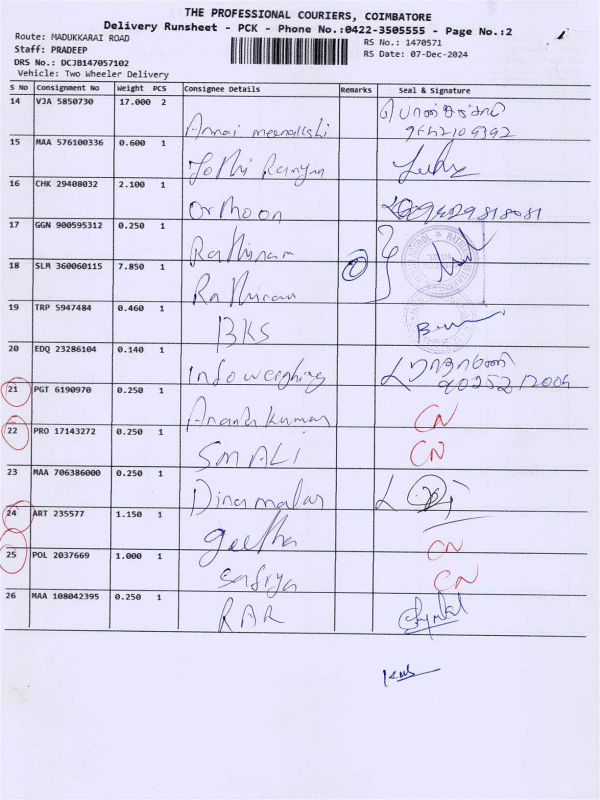 THE PROFESSIONAL COURIERS, COIMBATORE
Delivery Runsheet - PCK - Phone No.:0422-3505555 - Page No.:2
Route: MADUKKARAI ROAD
RS No.: 1470571
Staff: PRADEEP
RS Date: 07-Dec-2024
DRS No.: DCJB147057102
Vehicle: Two Wheeler Delivery
S No Consignment No Weight PCS Consignee Details Remarks Seal & Signature
14 VJA 5850730 17.000 2
Annai meenakshi
15 MAA 576100336 0.600 1
Jothi Ramya
16 CHK 29408032 2.100 1
Ormoon
17 GGN 900595312 0.250 1
Rathinam
18 SLM 360060115 7.850 1
Rathinam
19 TRP 5947484 0.460 1
BKS
20 EDQ 23286104 0.140 1
Info weighing
21 PGT 6190970 0.250 1
Anandkumar CN
22 PRO 17143272 0.250 1
SM ALI CN
23 MAA 706386000 0.250 1
Dinamalar
24 ART 235577 1.150 1
geetha CN
25 POL 2037669 1.000 1
Safiya CN
26 MAA 108042395 0.250 1
RAR